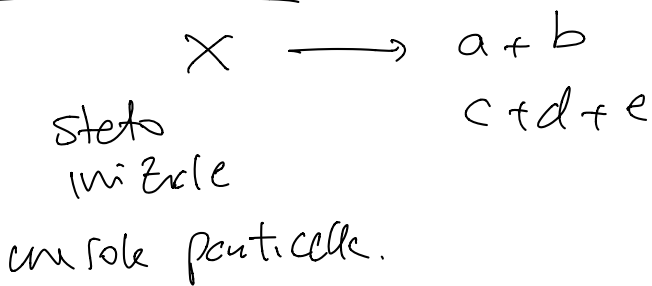 X → a + b
c + d + e
stato
iniziale
una sola particella.